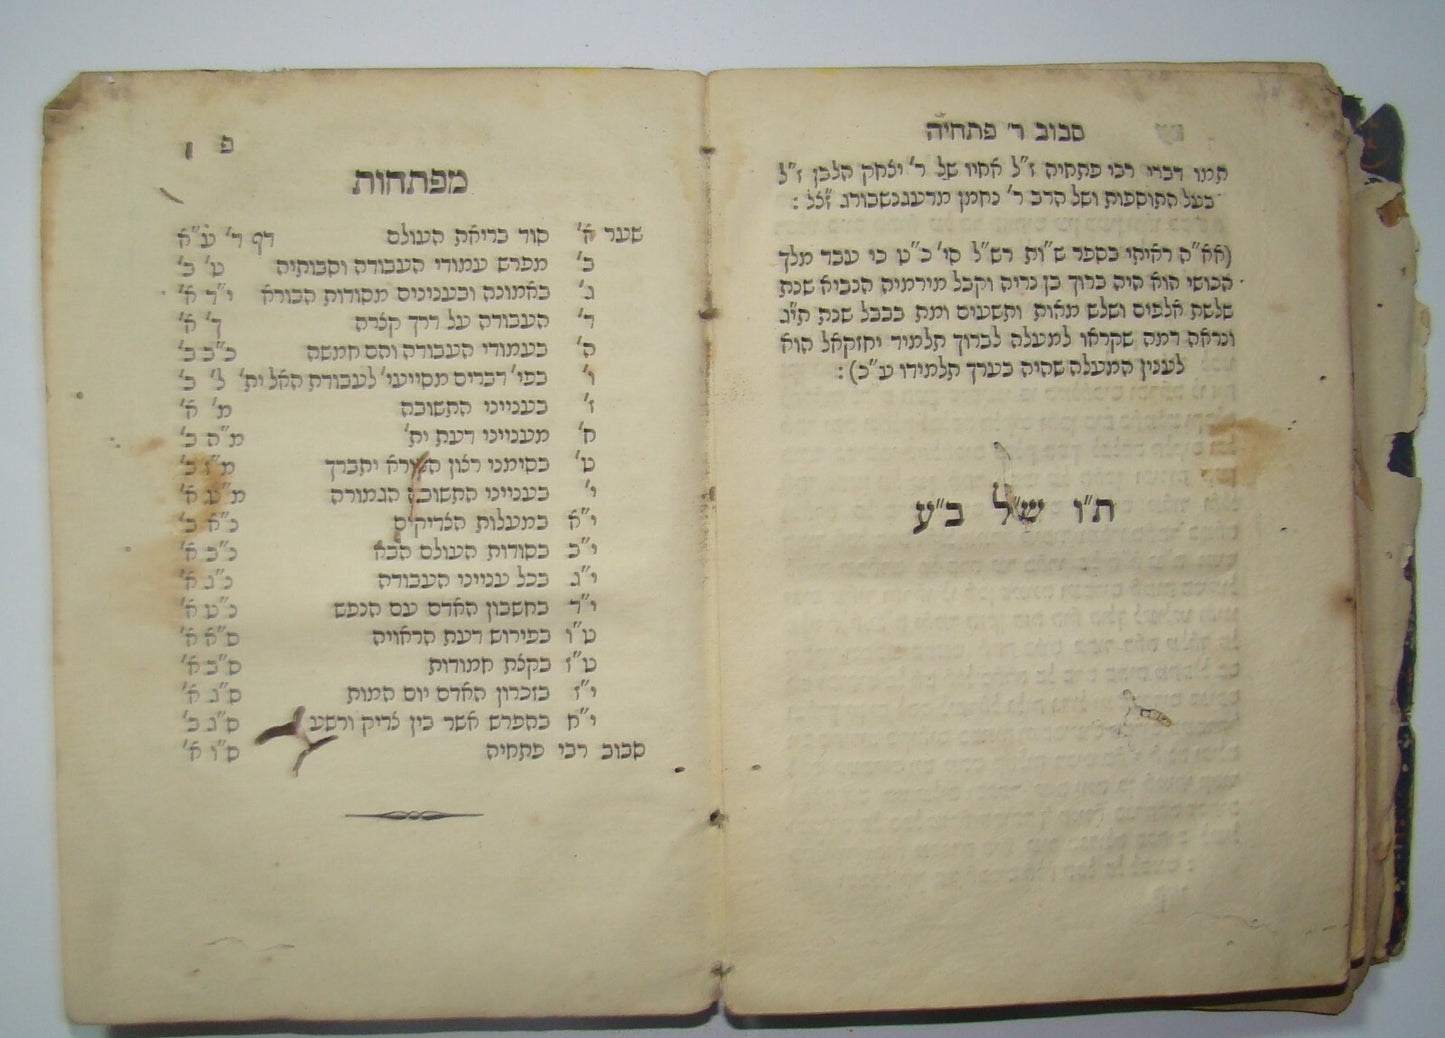 סבוב ר׳ פתחיה
תמו דברי רבי פתחיה ז״ל אחיו של ר׳ יצחק הלבן ז״ל
בעל התוספות ושל הרב ר׳ נחמן מרעגנשבורג זצ״ל :
(אא״ה ראיתי בספר ש״ות רש״ל סי׳ כ״ט כי עבד מלך
הכושי הוא היה ברוך בן נריה וקבל מירמיה הנביא שנת
שלשת אלפים ושלש מאות ותשעים ומת בבבל שנת תי״ג
ונראה דמה שקראו למעלה לברוך תלמיד יחזקאל הוא
לענין המעלה שהיה בערך תלמידו ע״כ) :
ת״ו ש״ל ב״ע
פ
מפתחות
שער א׳ סוד בריאת העולם דף ר׳ ע״א
ב׳ מפרש עמודי העבודה וסבותיה ט׳ ב׳
ג׳ באמונה ובענינים מסודות הבורא י״ד א׳
ד׳ העבודה על דרך קצרה ך׳ א׳
ה׳ בעמודי העבודה והם חמשה כ״ב ב׳
ו׳ בפי׳ דברים מסייעי׳ לעבודת האל ית׳ ל׳ ב׳
ז׳ בענייני התשובה מ׳ א׳
ח׳ מענייני דעת ית׳ מ״ה ב׳
ט׳ בסימני רצון הבורא יתברך מ״ז ב׳
י׳ בענייני התשובה הגמורה מ״ט א׳
י״א במעלות הצדיקים נ״א ב׳
י״ב בסודות העולם הבא נ״ב א׳
י״ג בכל ענייני העבודה נ״ג א׳
י״ד בחשבון האדם עם הנפש נ״ט א׳
ט״ו בפירוש דעת הראויה ס״א א׳
ט״ז בקצת חמודות ס״ב א׳
י״ז בזכרון האדם יום המות ס״ג א׳
י״ח בהפרש אשר בין צדיק ורשע ס״ג ב׳
סבוב רבי פתחיה ס״ו א׳